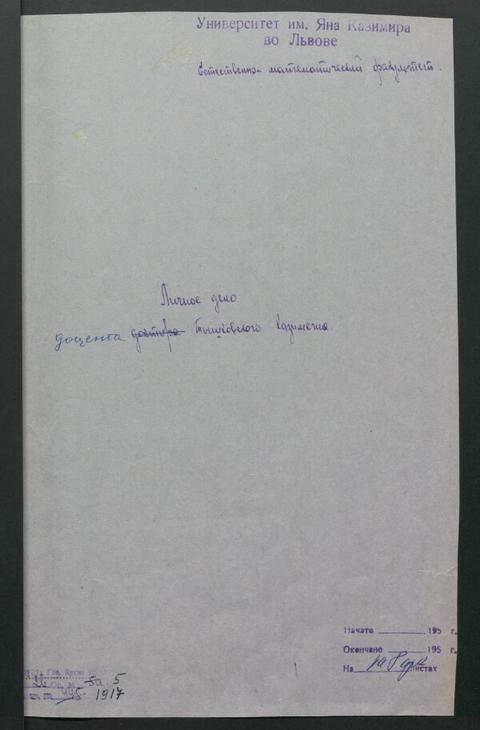 Университет им. Яна Казимира
во Львове
Естественно-математический факультет.
Личное дело
доцента доктора Тышковского Казимежа
Начато 195 г.
Окончено 195 г.
На листах
26 5а 5
495 1917